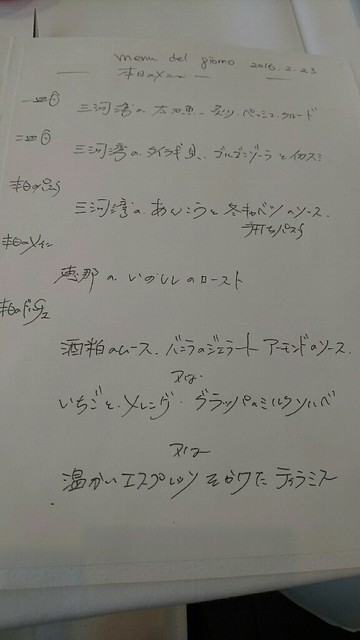 menu del giorno 2016.2.23
本日のメニュー
一皿目
三河湾の太刀魚の炙り ペッシェクルード
二皿目
三河湾のタイラギ貝、ゴルゴンゾーラとイカスミ
本日のパスタ
三河湾のあんこうと冬キャベツのソース
手打ちパスタ
本日のメイン
恵那のいのししのロースト
本日のドルチェ
酒粕のムース、バニラのジェラート アーモンドのソース
又は
いちごと、メレンゲ・グラッパのミルクソルベ
又は
温かいエスプレッソをかけた ティラミス